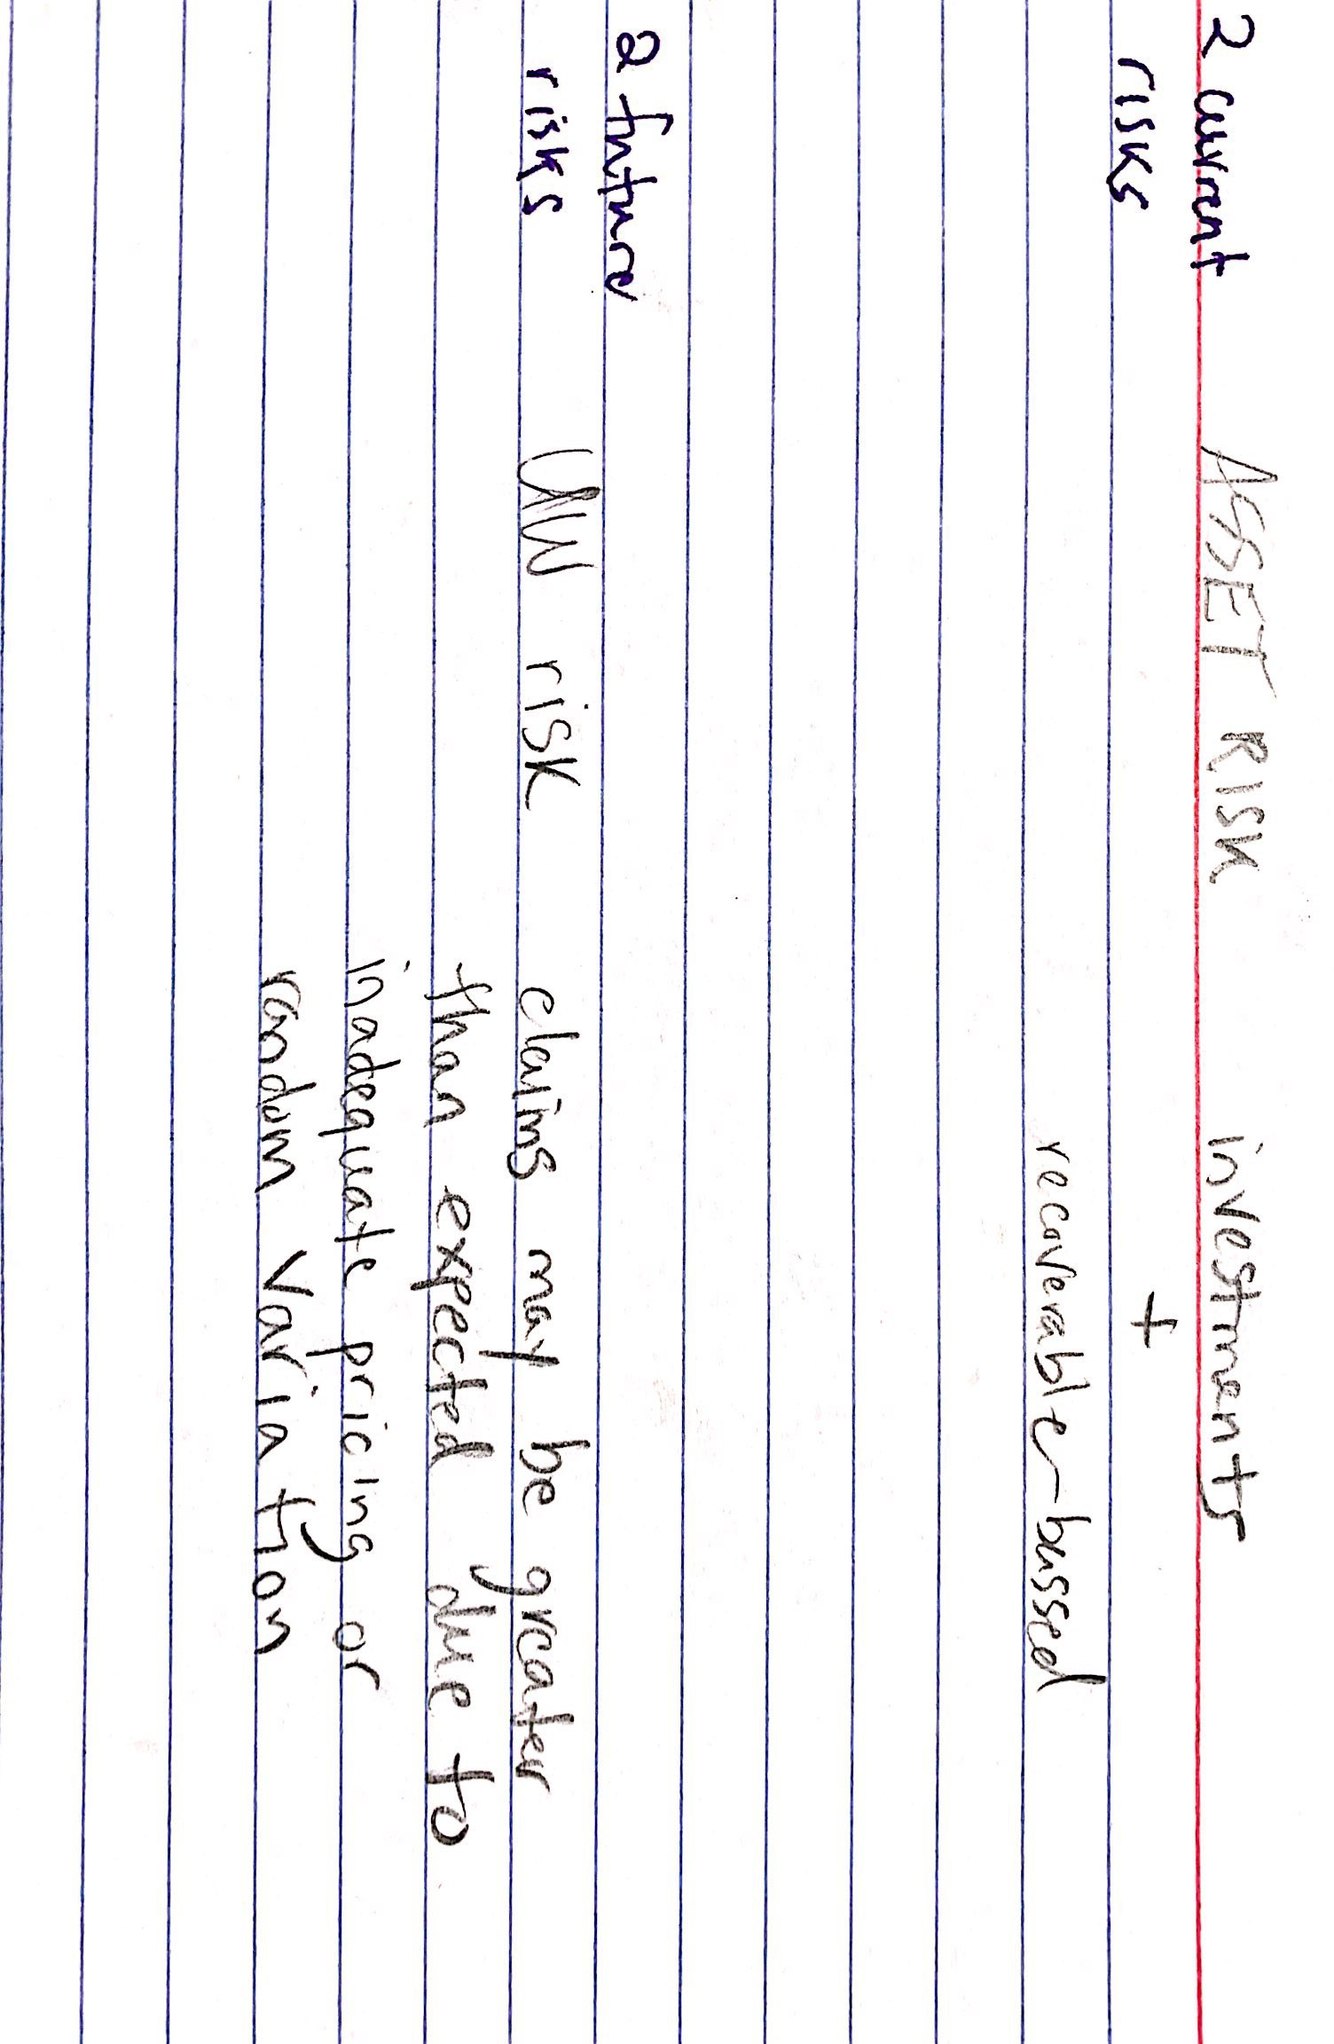 2 current ASSET RISK investments
risks +
recoverable-bassed
2 future
risks UW risk claims may be greater
than expected due to
inadequate pricing or
random variation